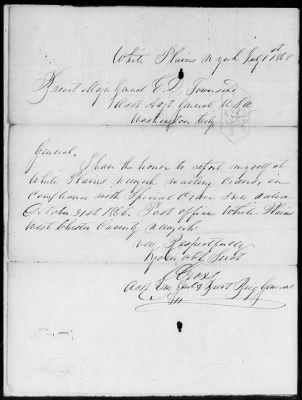 White Plains N York July 1st 1868
Brevet Major General E. D. Townsend
Asst Adjt General U.S.A.
Washington City
General,
I have the honor to report myself at
White Plains New york awaiting Orders, in
Compliance with Special Order dated
October 31st 1866. Post office White Plains
West Chester County New york.
Very Respectfully
Your obt Servt
Asst Qr Genl & Brevt Brig General